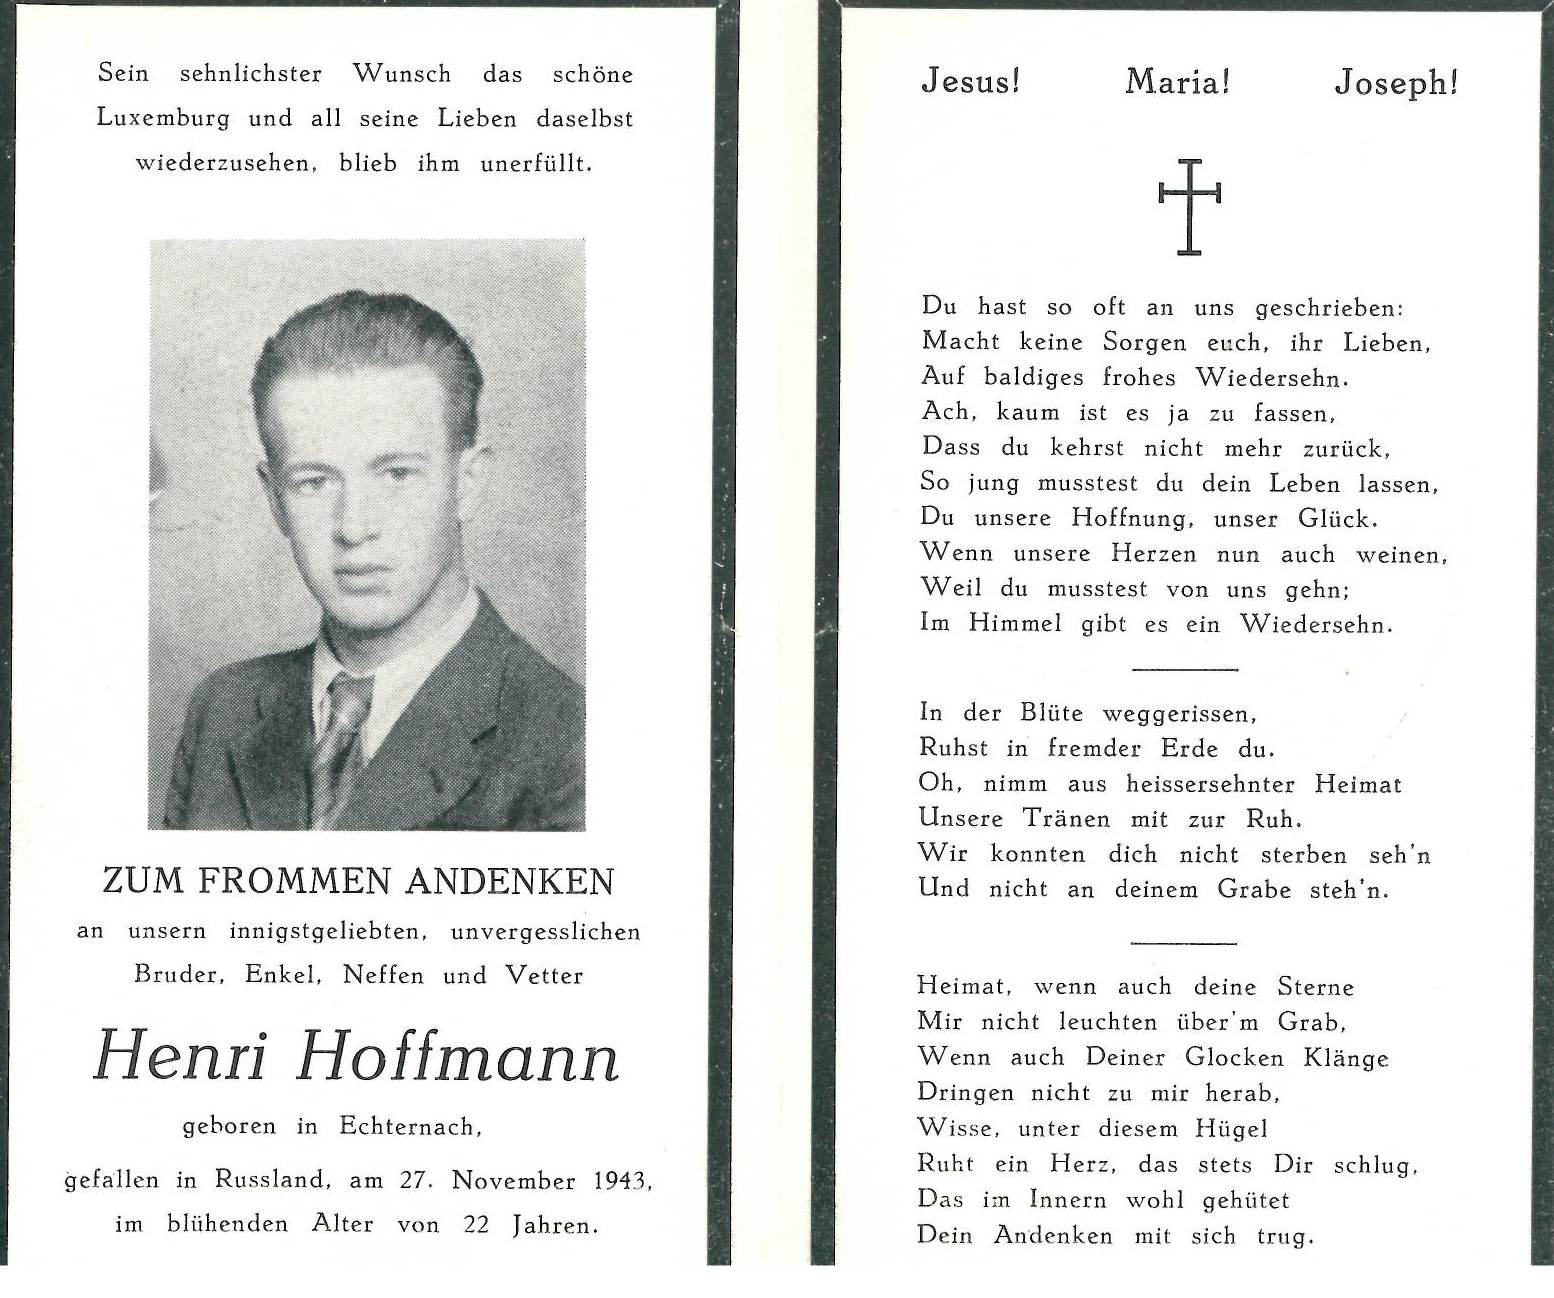 Sein sehnlichster Wunsch das schöne
Luxemburg und all seine Lieben daselbst
wiederzusehen, blieb ihm unerfüllt.
ZUM FROMMEN ANDENKEN
an unsern innigstgeliebten, unvergesslichen
Bruder, Enkel, Neffen und Vetter
Henri Hoffmann
geboren in Echternach,
gefallen in Russland, am 27. November 1943,
im blühenden Alter von 22 Jahren.
Jesus! Maria! Joseph!
Du hast so oft an uns geschrieben:
Macht keine Sorgen euch, ihr Lieben,
Auf baldiges frohes Wiedersehn.
Ach, kaum ist es ja zu fassen,
Dass du kehrst nicht mehr zurück,
So jung musstest du dein Leben lassen,
Du unsere Hoffnung, unser Glück.
Wenn unsere Herzen nun auch weinen,
Weil du musstest von uns gehn;
Im Himmel gibt es ein Wiedersehn.
In der Blüte weggerissen,
Ruhst in fremder Erde du.
Oh, nimm aus heissersehnter Heimat
Unsere Tränen mit zur Ruh.
Wir konnten dich nicht sterben seh'n
Und nicht an deinem Grabe steh'n.
Heimat, wenn auch deine Sterne
Mir nicht leuchten über'm Grab,
Wenn auch Deiner Glocken Klänge
Dringen nicht zu mir herab,
Wisse, unter diesem Hügel
Ruht ein Herz, das stets Dir schlug,
Das im Innern wohl gehütet
Dein Andenken mit sich trug.